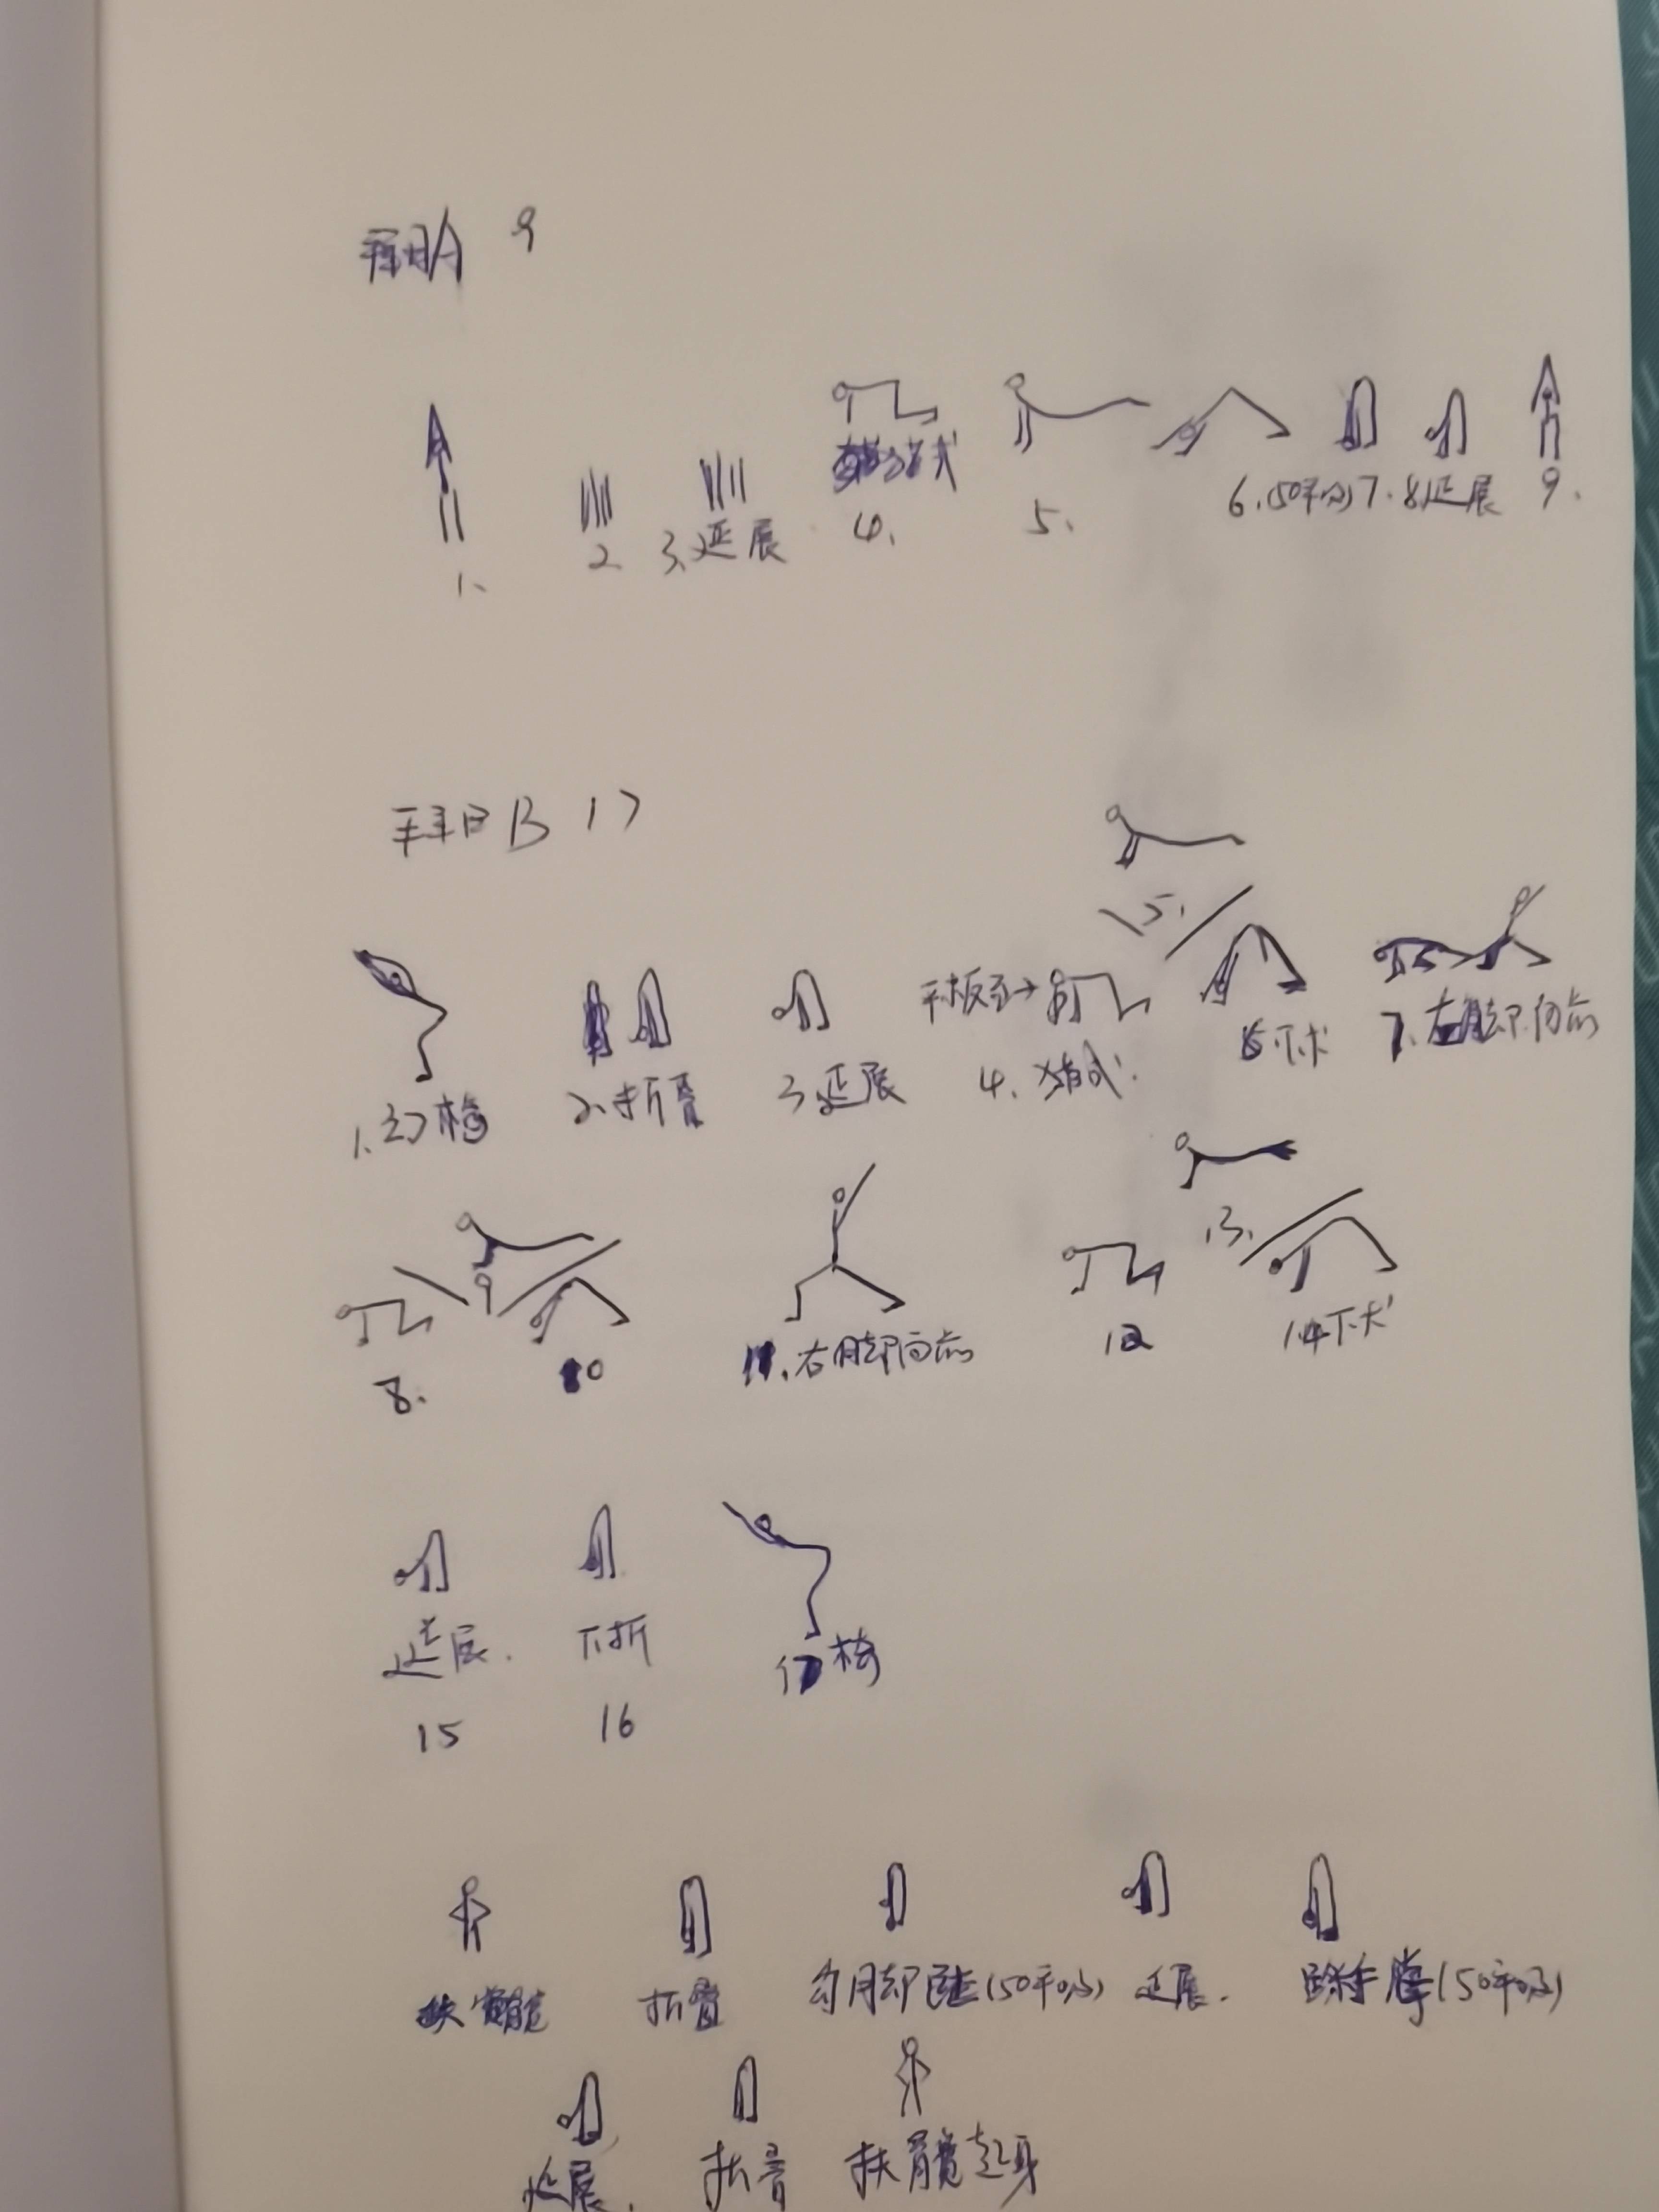 拜日A 9
1、 2 3、延展 猫式 4、 5、 6、(50平分) 7. 8延展 9.
拜日B 17
5、
平板至→
1、幻椅 2、折叠 3延展 4、猫式 6下犬 7、左脚向前
8、 9 10 11、右脚向前 12 13、 14下犬
延展. 下折 17椅
15 16
扶髋 折叠 勾脚趾(50平吸) 延展. 踩手掌(50平吸)
延展. 折叠 扶髋起身